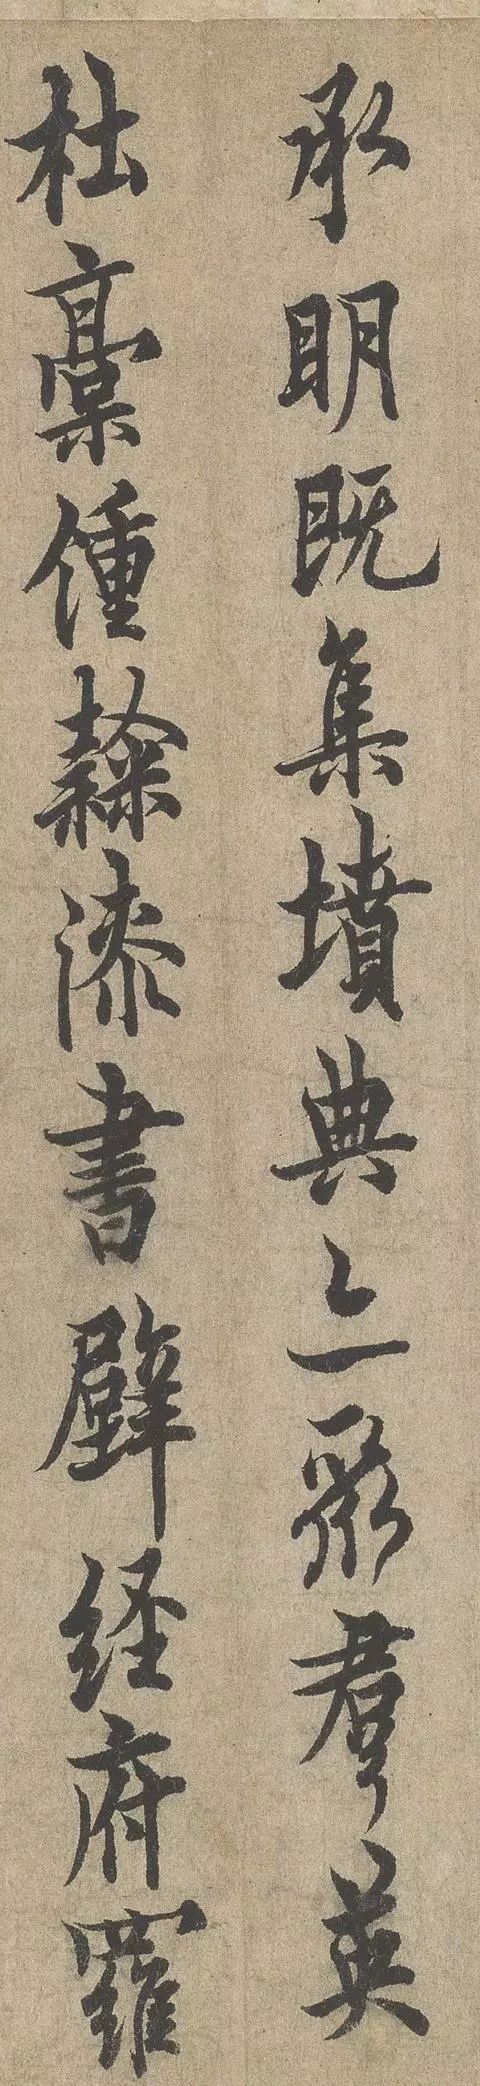 承明既集墳典亦聚群英
杜稾鍾隸漆書壁經府羅